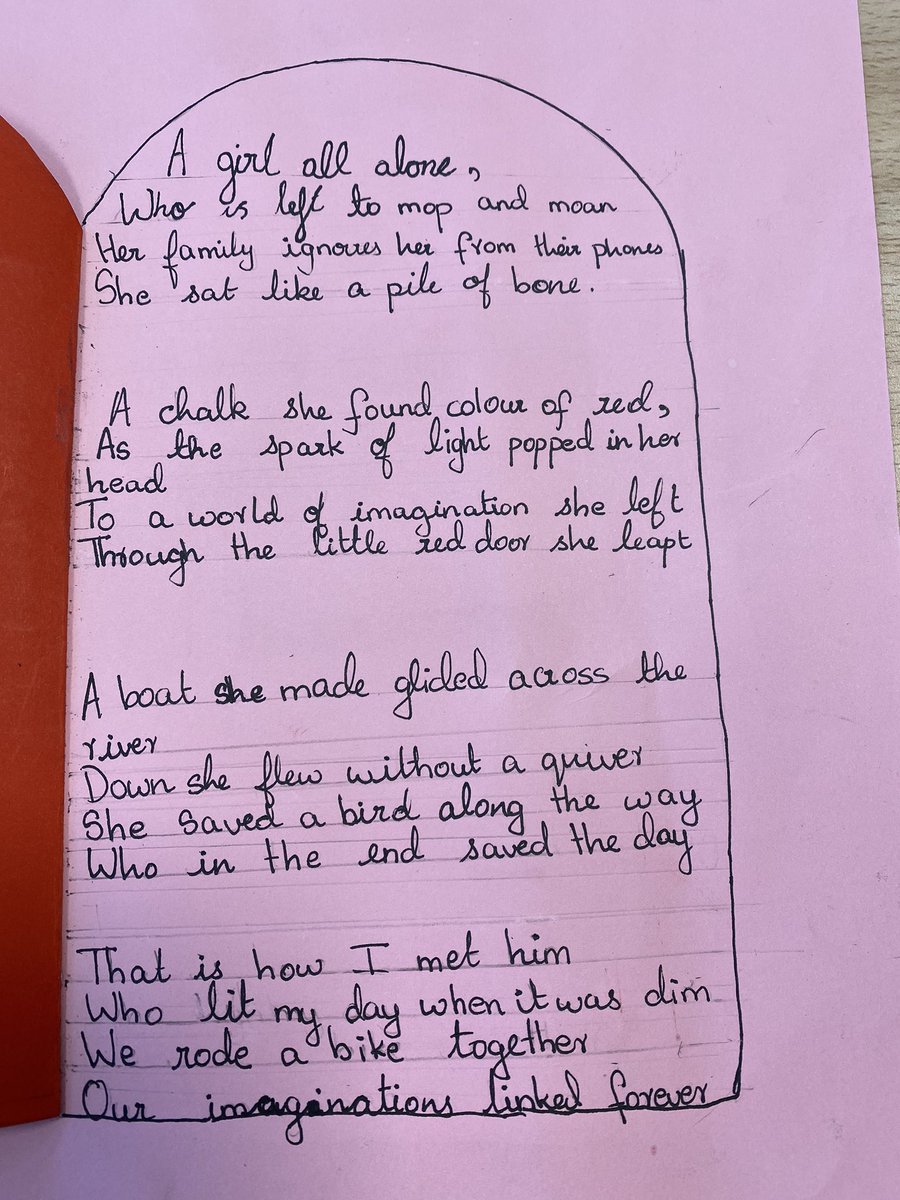 A girl all alone,
Who is left to mop and moan
Her family ignores her from their phones
She sat like a pile of bone.
A chalk she found colour of red,
As the spark of light popped in her
head
To a world of imagination she left
Through the little red door she leapt
A boat she made glided across the
river
Down she flew without a quiver
She saved a bird along the way
Who in the end saved the day
That is how I met him
Who lit my day when it was dim
We rode a bike together
Our imaginations linked forever